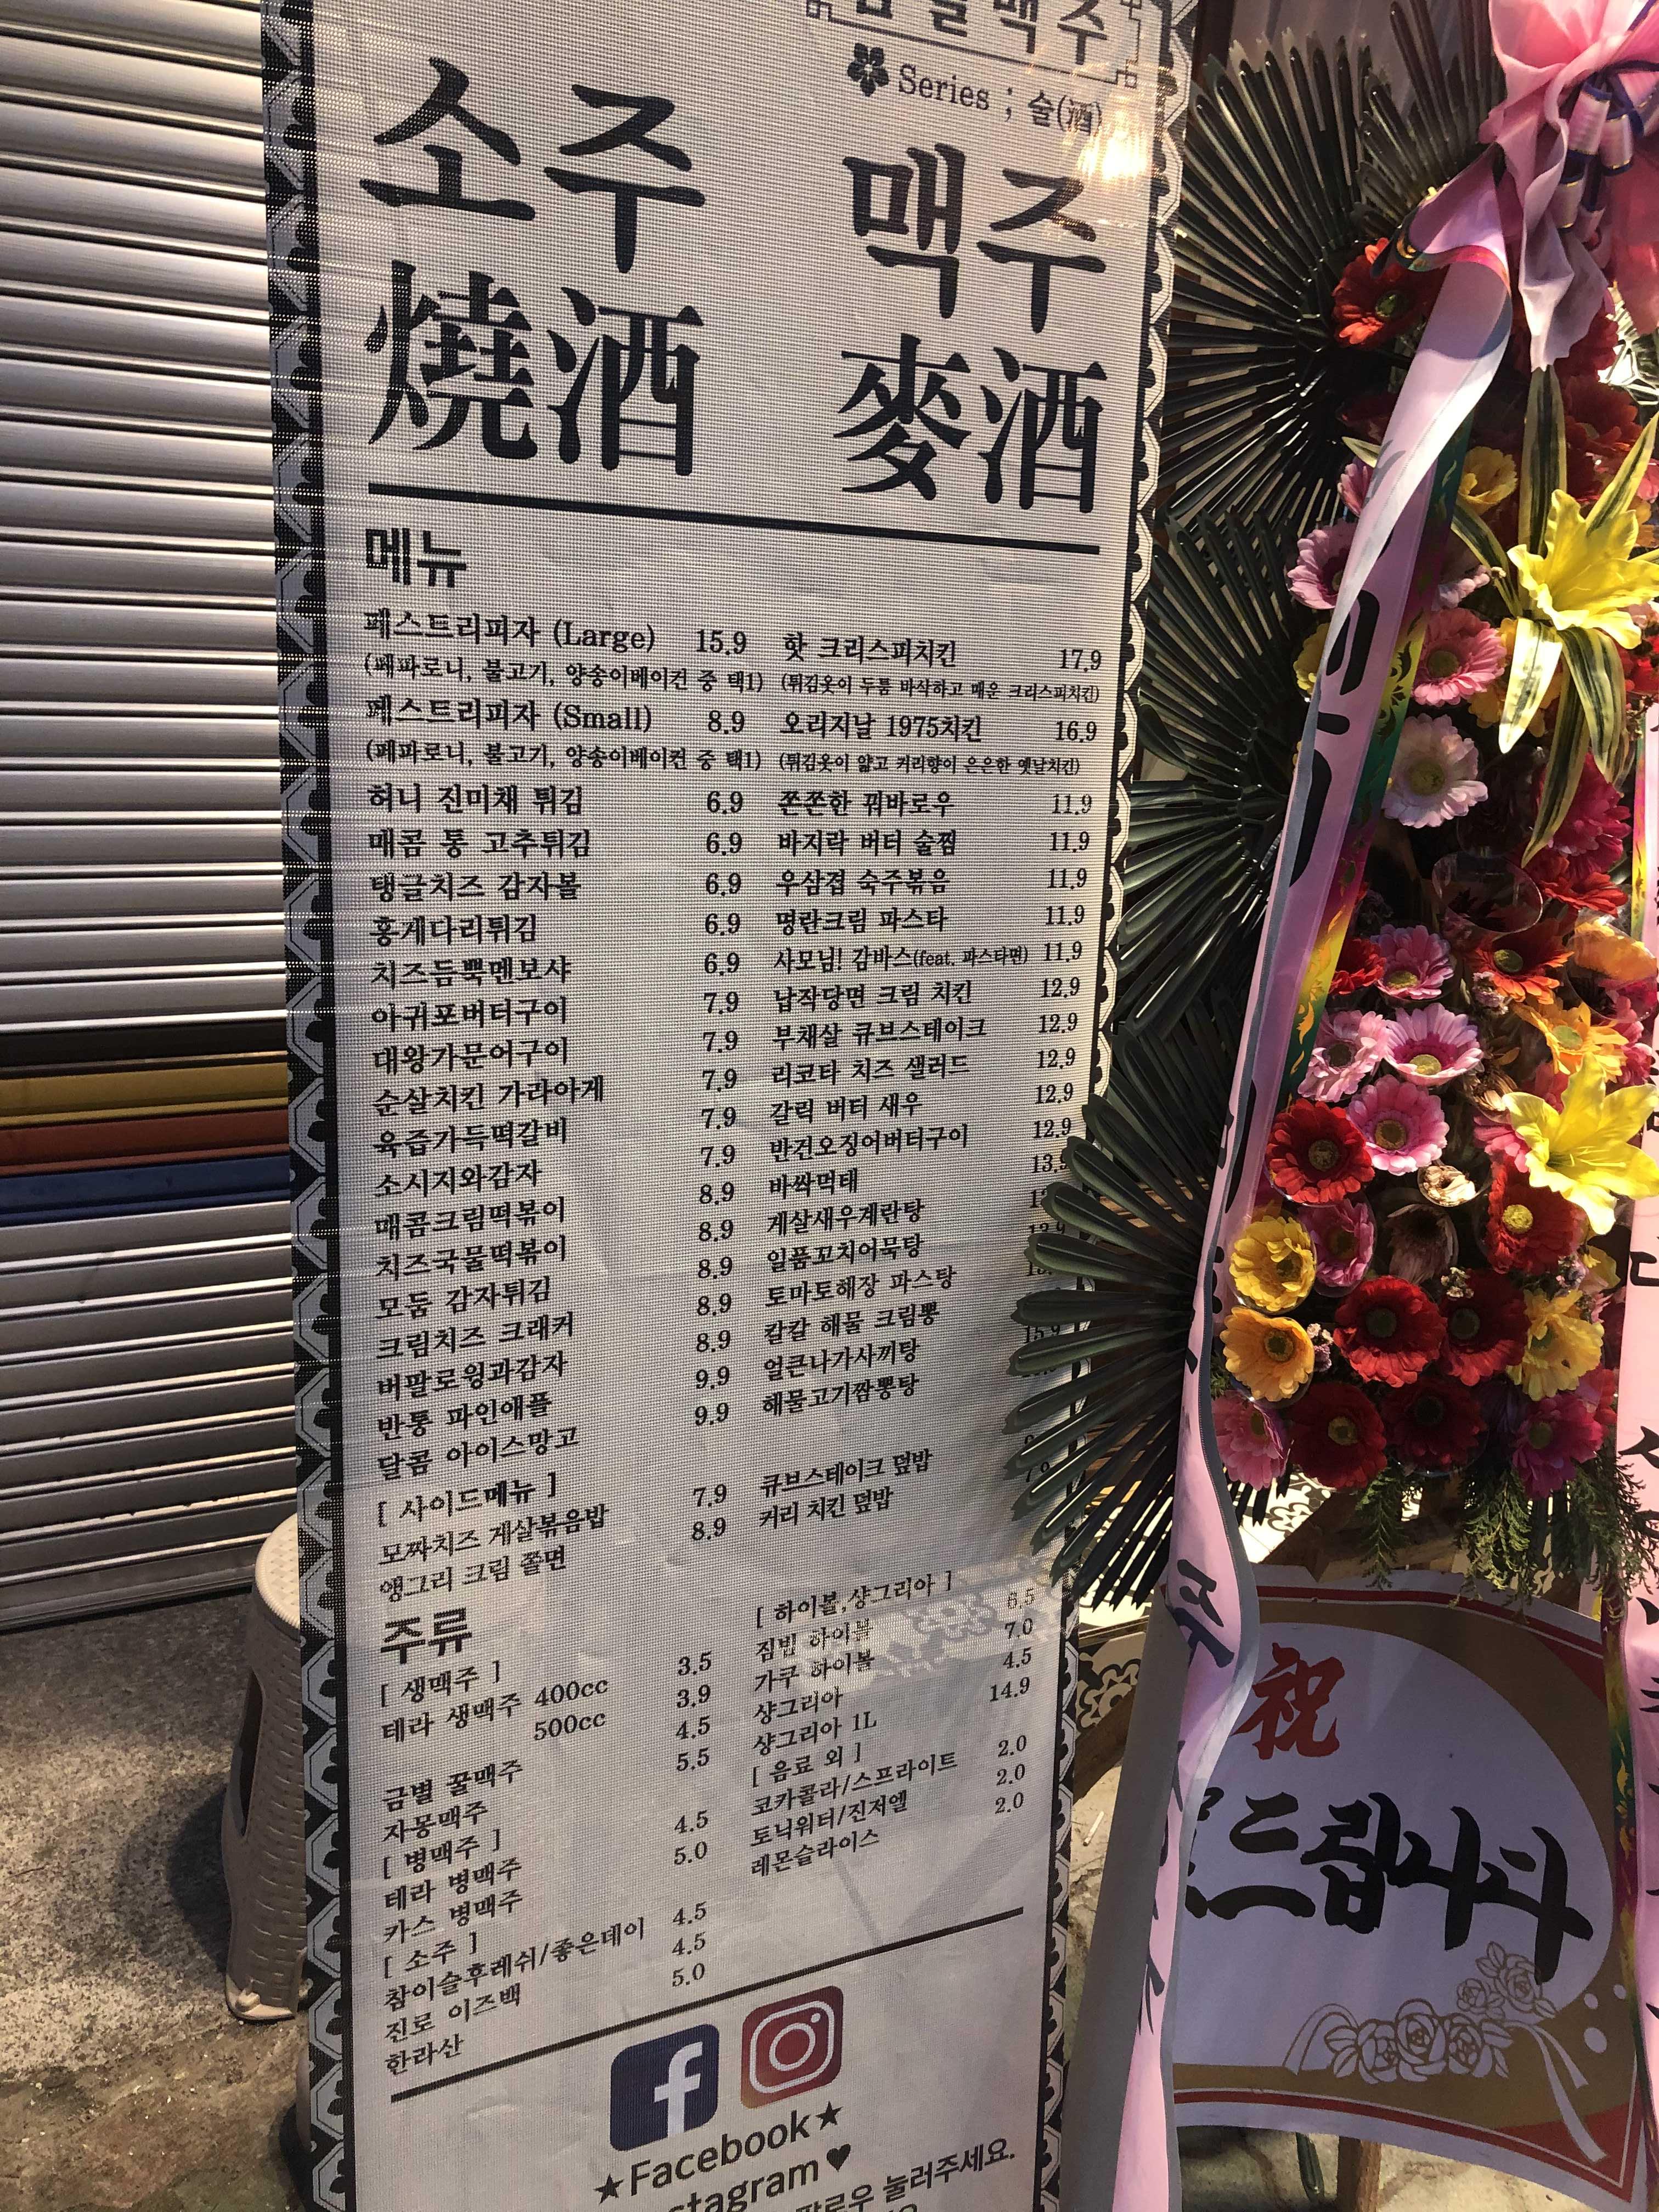 맥주
Series ; 술(酒)
소주 맥주
燒酒 麥酒
메뉴
페스트리피자 (Large) 15.9
(페파로니, 불고기, 양송이베이컨 중 택1)
페스트리피자 (Small) 8.9
(페파로니, 불고기, 양송이베이컨 중 택1)
허니 진미채 튀김 6.9
매콤 통 고추튀김 6.9
탱글치즈 감자볼 6.9
홍게다리튀김 6.9
치즈듬뿍멘보샤 6.9
아귀포버터구이 7.9
대왕가문어구이 7.9
순살치킨 가라아게 7.9
육즙가득떡갈비 7.9
소시지와감자 7.9
매콤크림떡볶이 8.9
치즈국물떡볶이 8.9
모둠 감자튀김 8.9
크림치즈 크래커 8.9
버팔로윙과감자 8.9
반통 파인애플 9.9
달콤 아이스망고 9.9
[ 사이드메뉴 ]
모짜치즈 게살볶음밥 7.9
앵그리 크림 쫄면 8.9
핫 크리스피치킨 17.9
(튀김옷이 두툼 바삭하고 매운 크리스피치킨)
오리지날 1975치킨 16.9
(튀김옷이 얇고 커리향이 은은한 옛날치킨)
쫀쫀한 꿔바로우 11.9
바지락 버터 술찜 11.9
우삼겹 숙주볶음 11.9
명란크림 파스타 11.9
사모님! 감바스(feat. 파스타면) 11.9
납작당면 크림 치킨 12.9
부채살 큐브스테이크 12.9
리코타 치즈 샐러드 12.9
갈릭 버터 새우 12.9
반건오징어버터구이 12.9
바싹먹태 13.9
게살새우계란탕
일품꼬치어묵탕 13.9
토마토해장 파스탕
칼칼 해물 크림뽕 15.9
얼큰나가사끼탕
해물고기짬뽕탕
큐브스테이크 덮밥
커리 치킨 덮밥 7.9
주류
[ 생맥주 ]
테라 생맥주 400cc 3.5
500cc 3.9
금별 꿀맥주 4.5
자몽맥주 5.5
[ 병맥주 ]
테라 병맥주 4.5
카스 병맥주 5.0
[ 소주 ]
참이슬후레쉬/좋은데이 4.5
진로 이즈백 4.5
한라산 5.0
[ 하이볼,샹그리아 ]
짐빔 하이볼 6.5
가쿠 하이볼 7.0
샹그리아 4.5
샹그리아 1L 14.9
[ 음료 외 ]
코카콜라/스프라이트 2.0
토닉워터/진저엘 2.0
레몬슬라이스 2.0
★Facebook★
stagram♥
팔로우 눌러주세요.
祝
드립니다